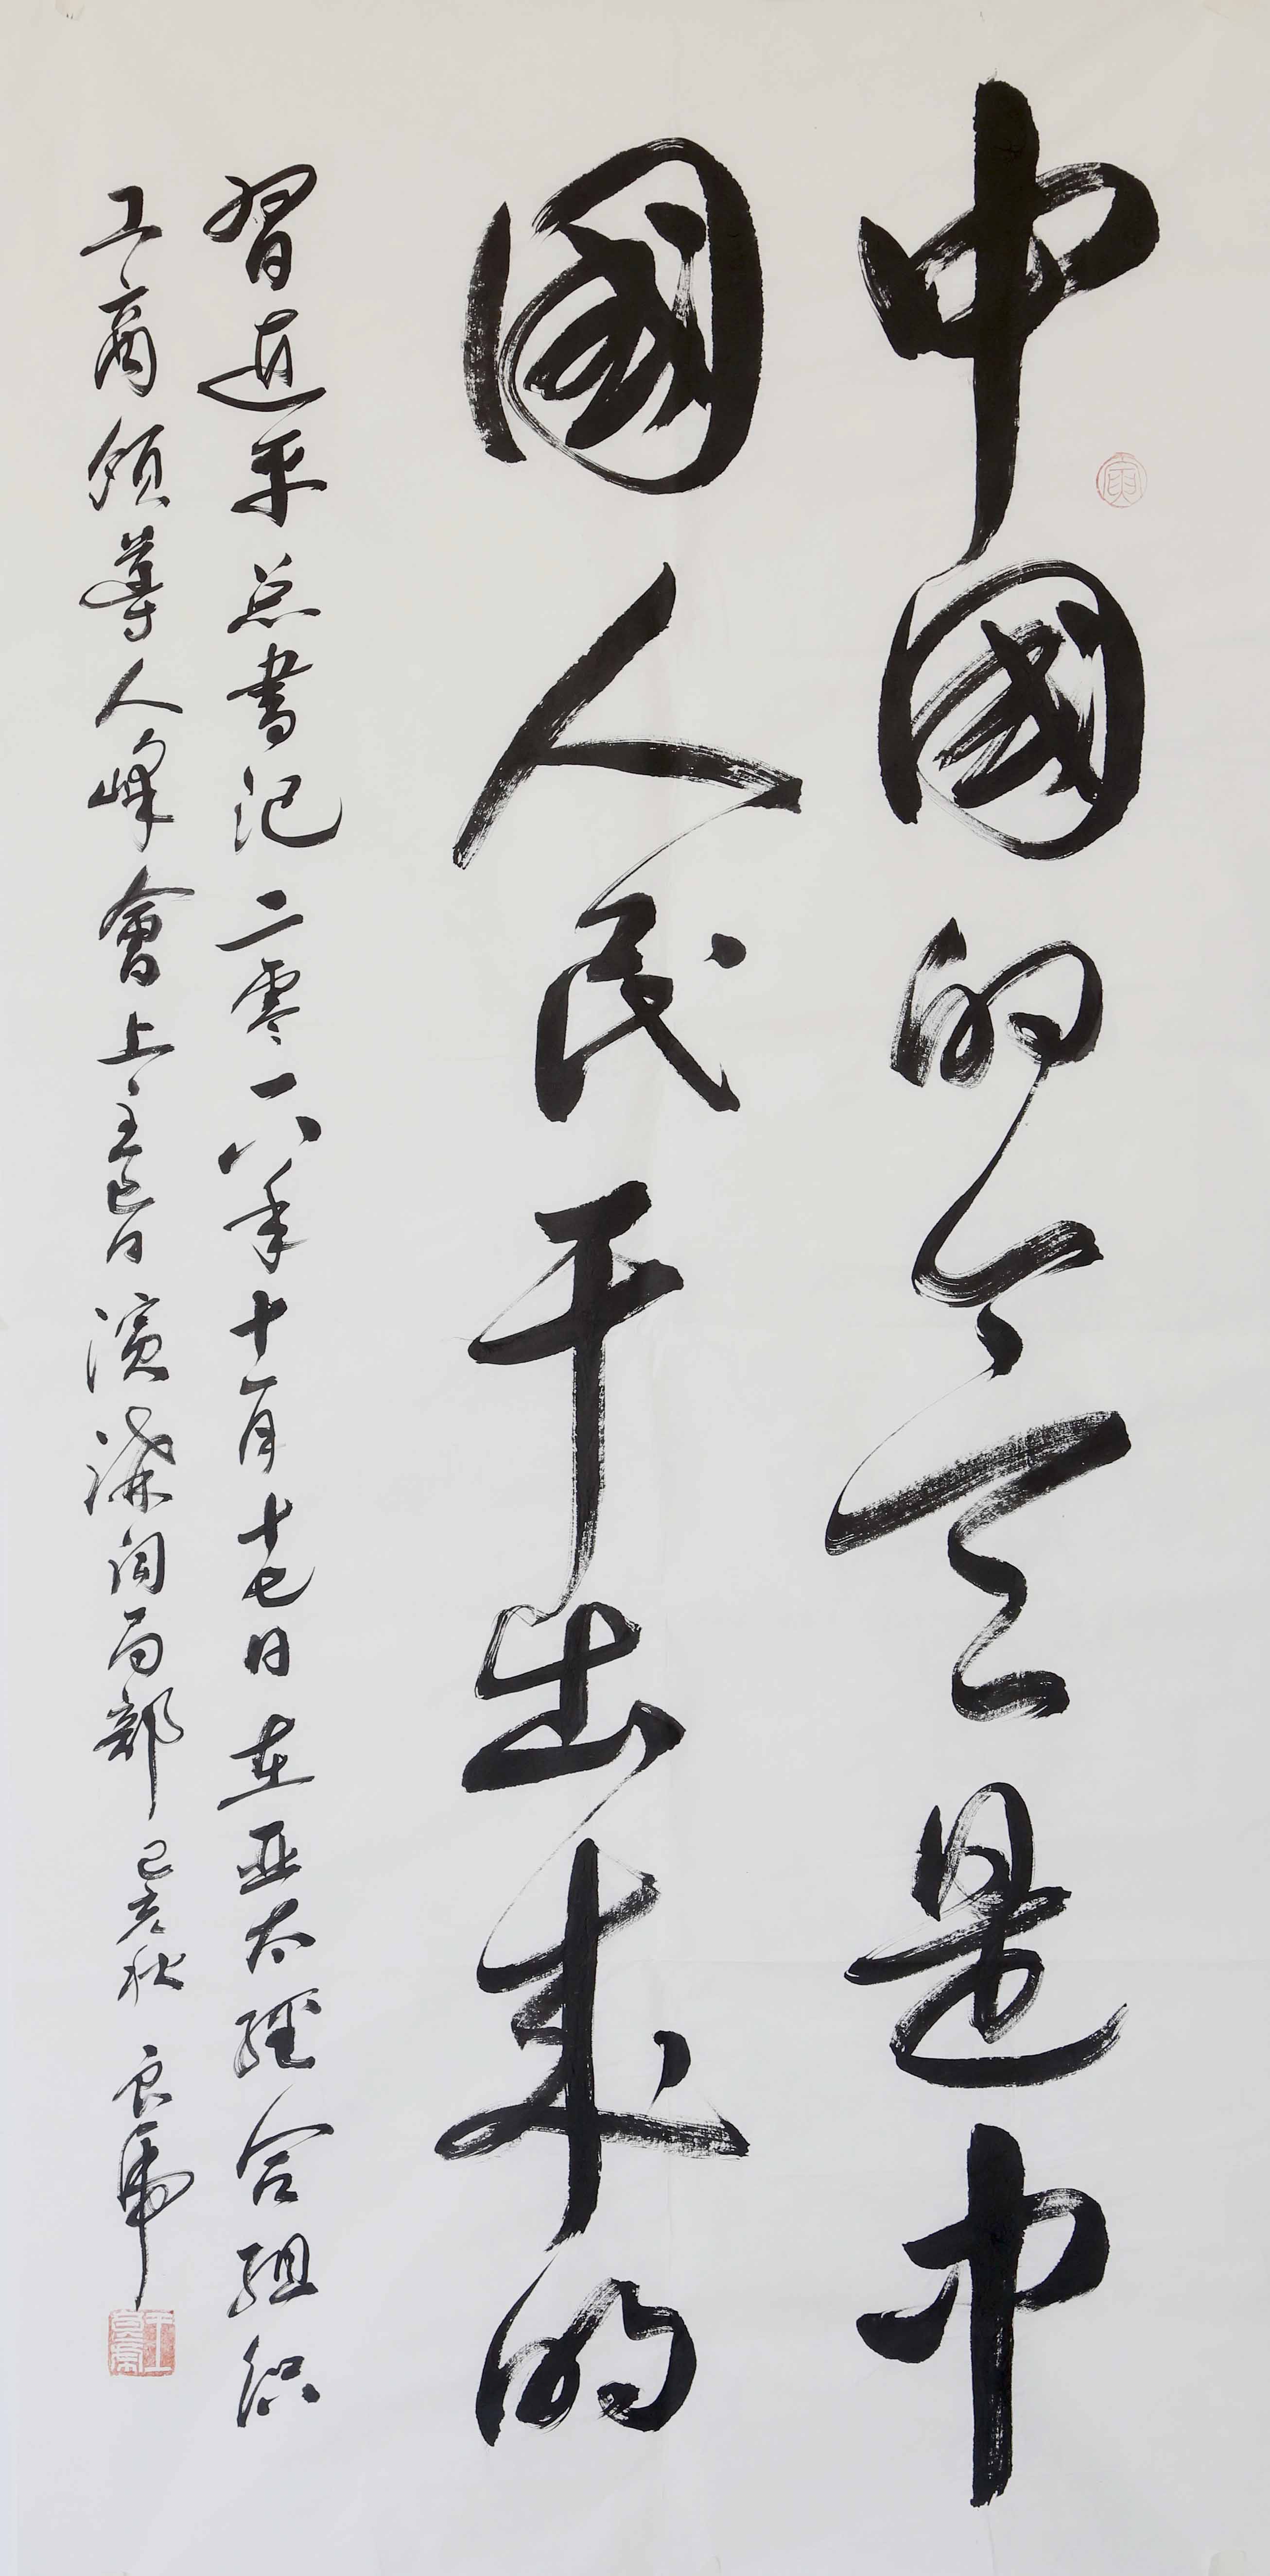 中國的今天是中
國人民干出来的
習近平总書记二零一八年十一月十七日在亚太經合組织
工商领導人峰會上主旨演講词局部 己亥秋 良虎
寅